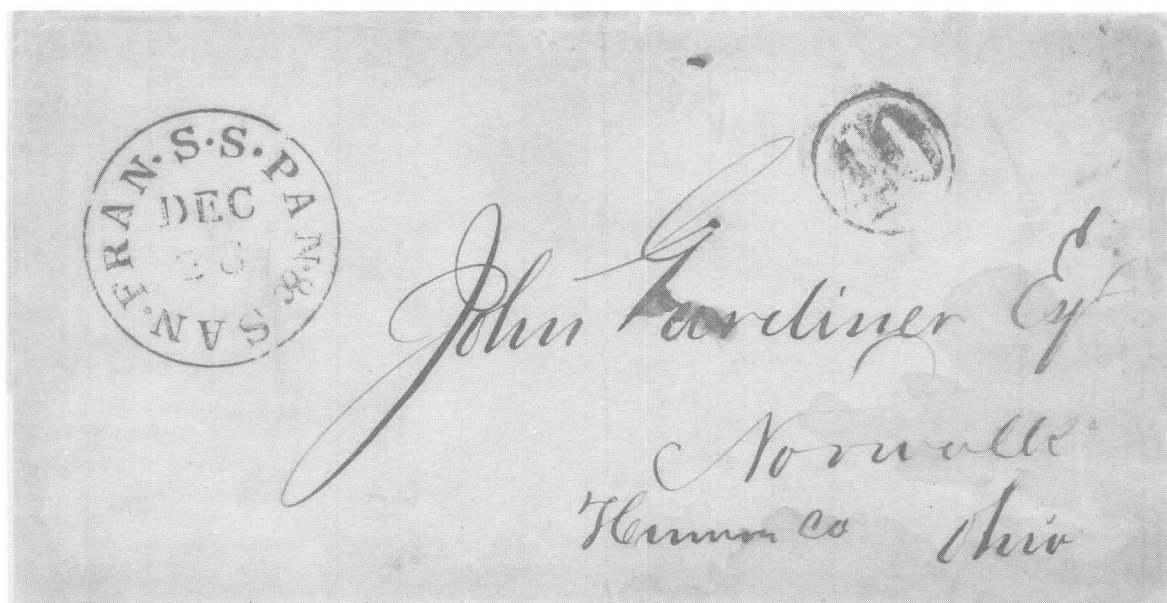 PAN. & SAN. FRAN. S. S.
DEC
John Gardiner Esq
Norwalk
Huron Co Ohio